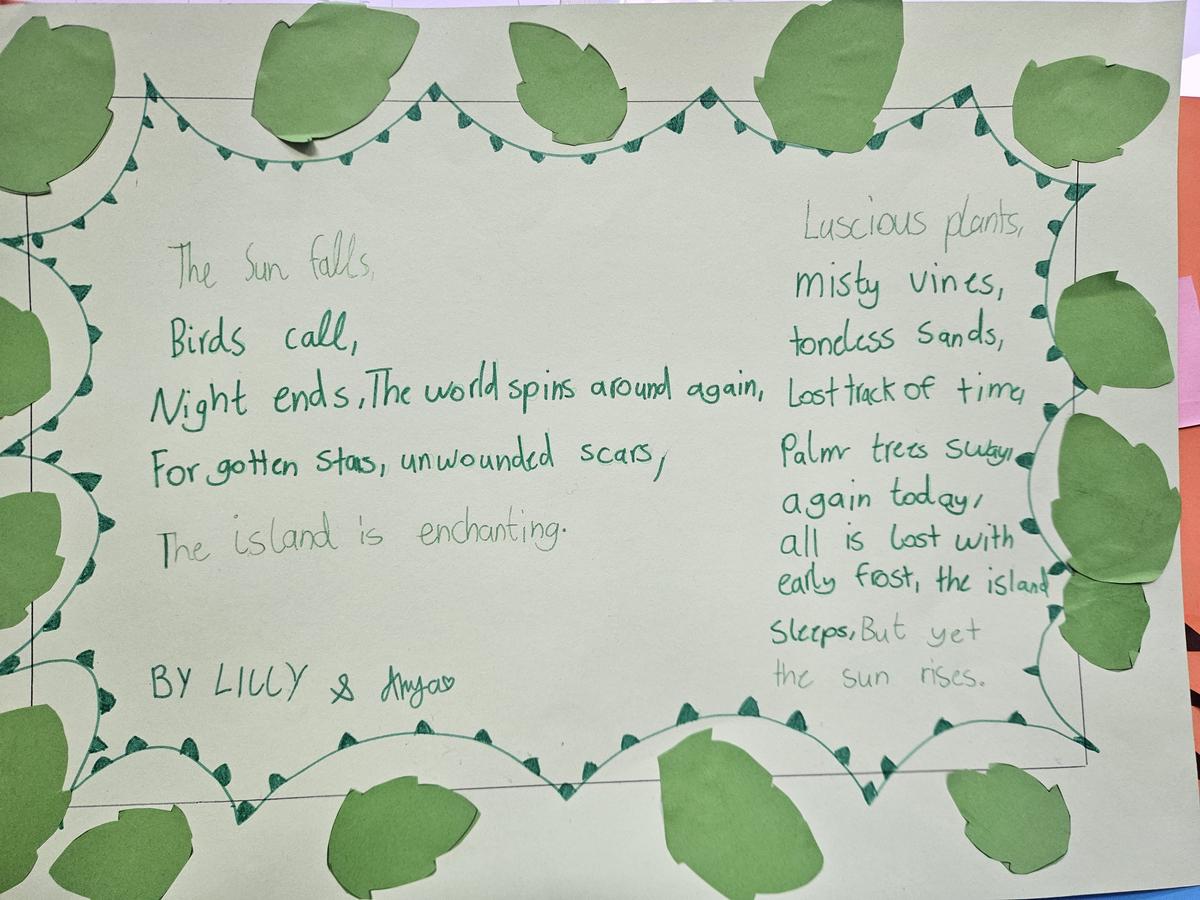 The Sun falls,
Birds call,
Night ends, The world spins around again,
Forgotten stars, unwounded scars,
The island is enchanting.
BY LILLY & Anya
Luscious plants,
misty vines,
toneless sands,
Lost track of time,
Palm trees sway,
again today,
all is lost with
early frost, the island
sleeps, But yet
the sun rises.